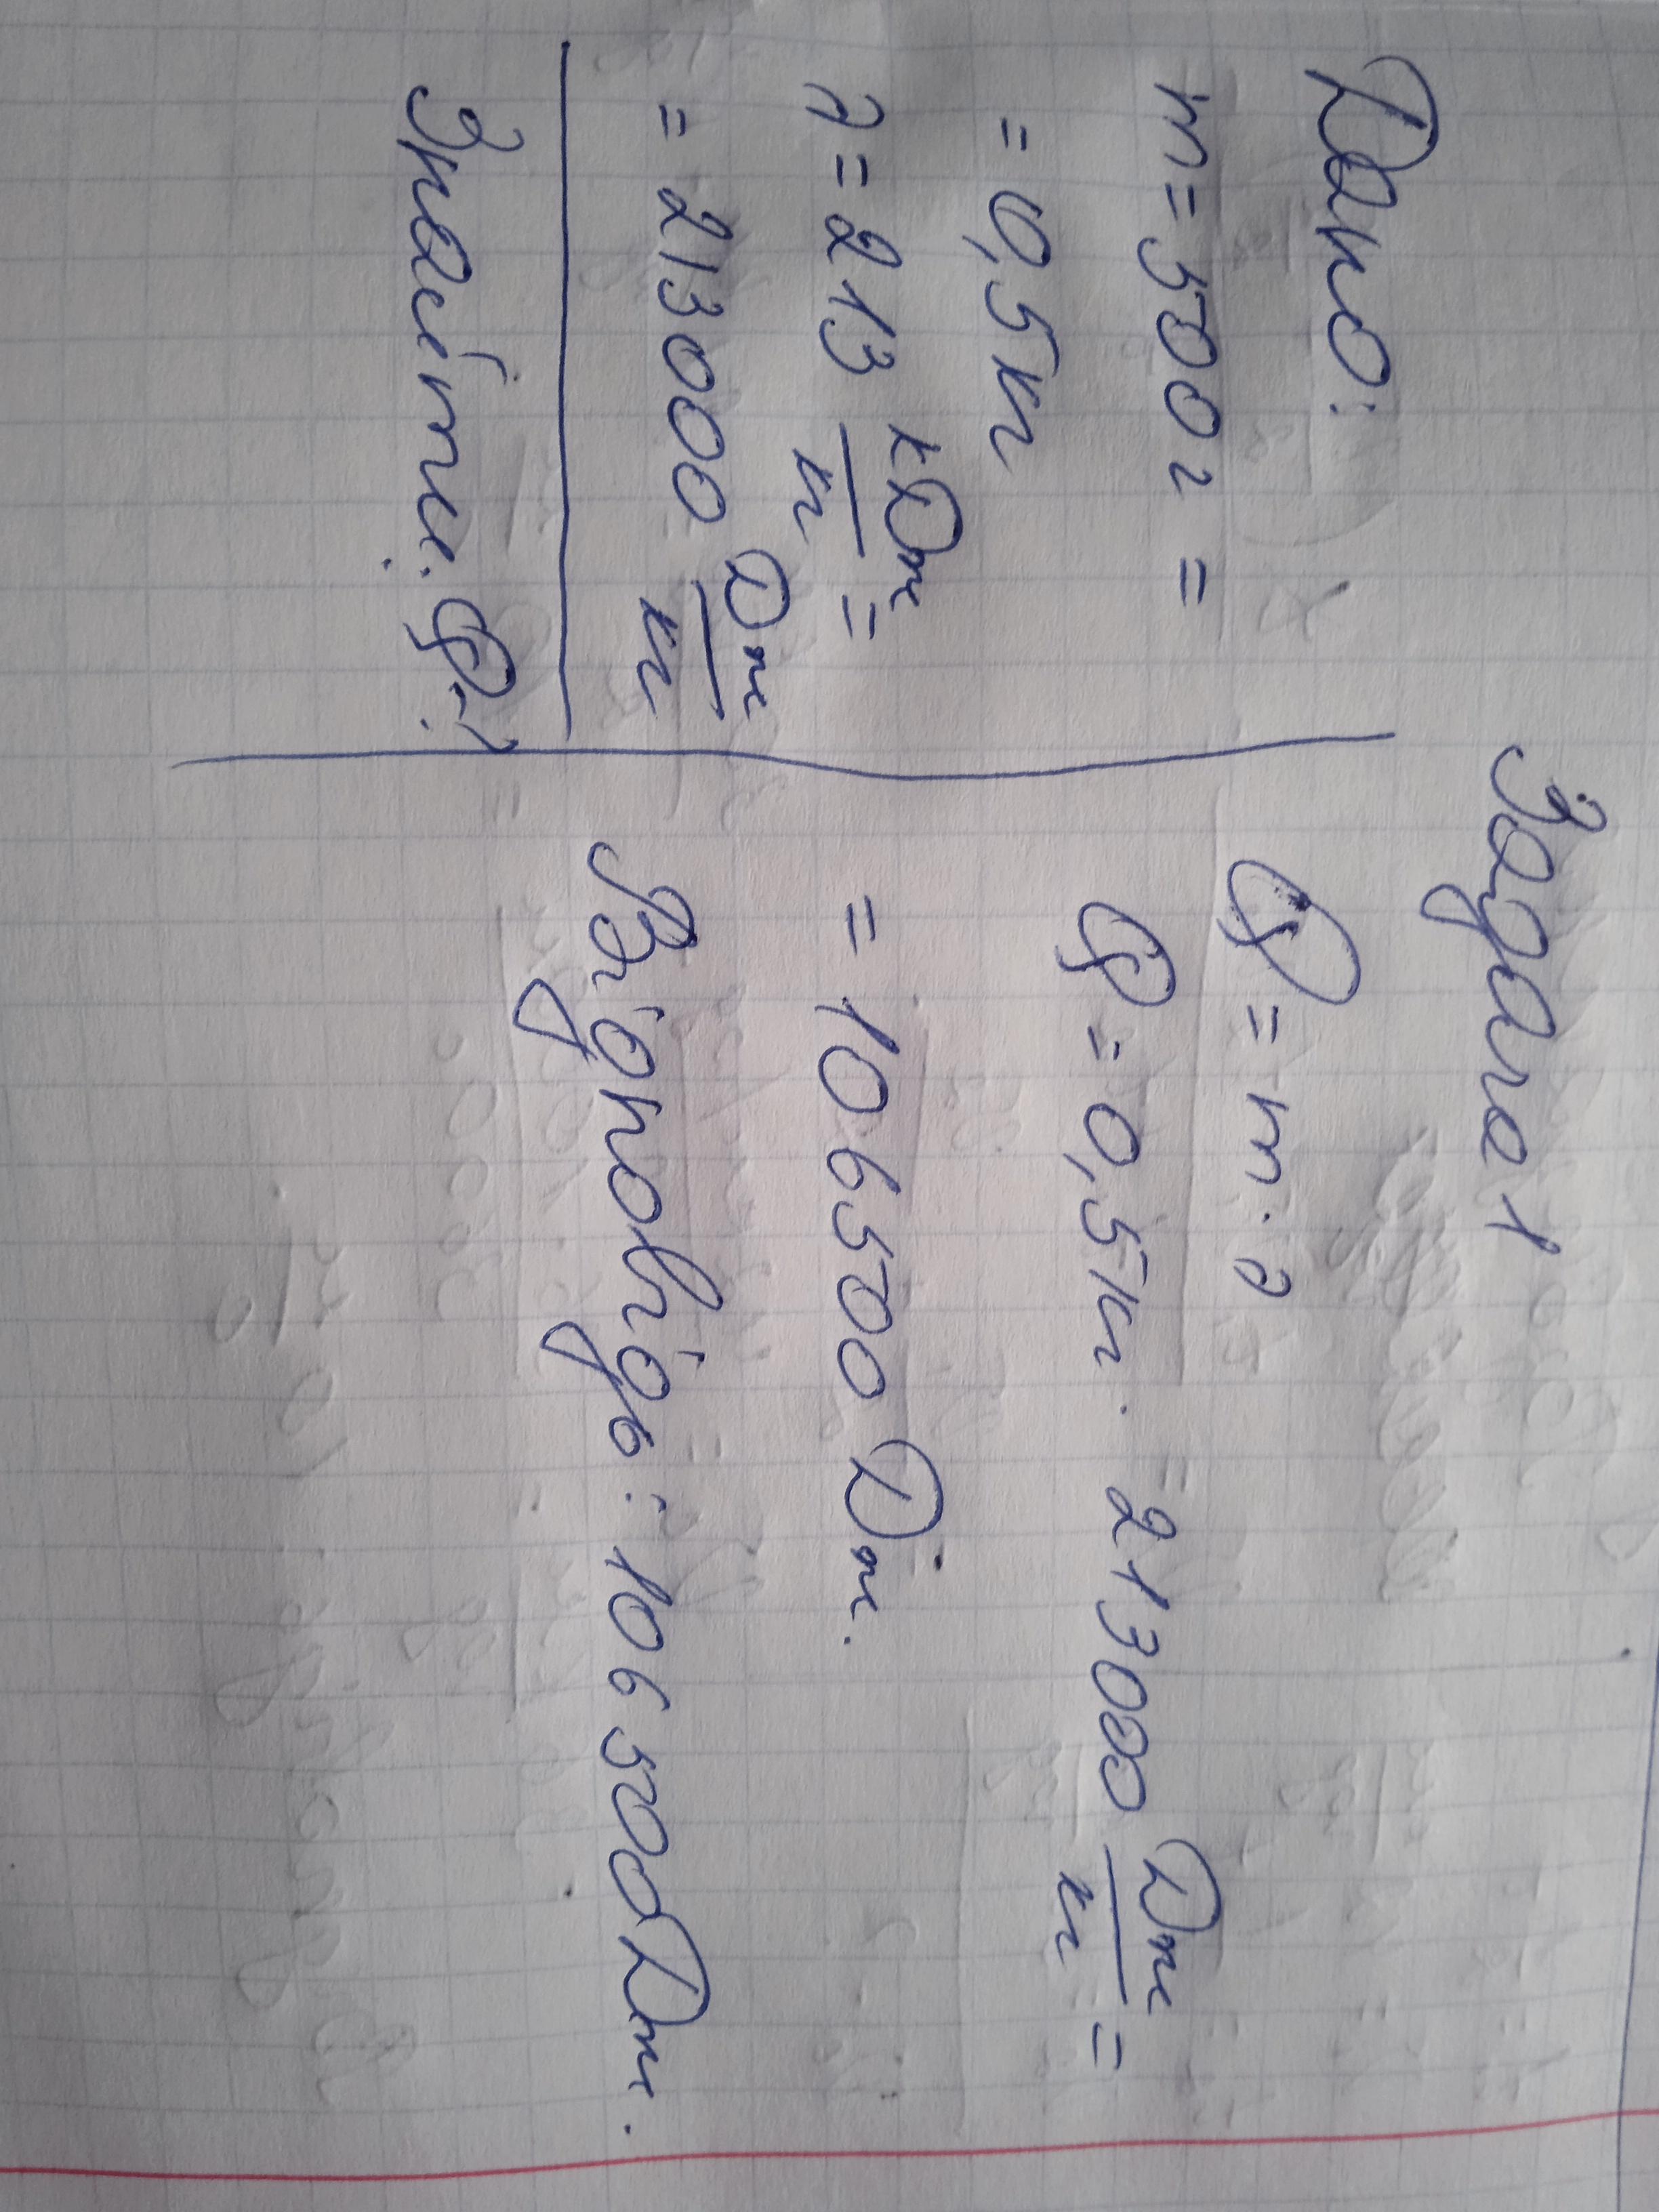 Задача 1
Дано:
m = 500 г =
= 0,5 кг
λ = 213 кДж/кг =
= 213000 Дж/кг
Знайти: Q - ?
Q = m · λ
Q = 0,5 кг · 213000 Дж/кг =
= 106500 Дж.
Відповідь: 106500 Дж.